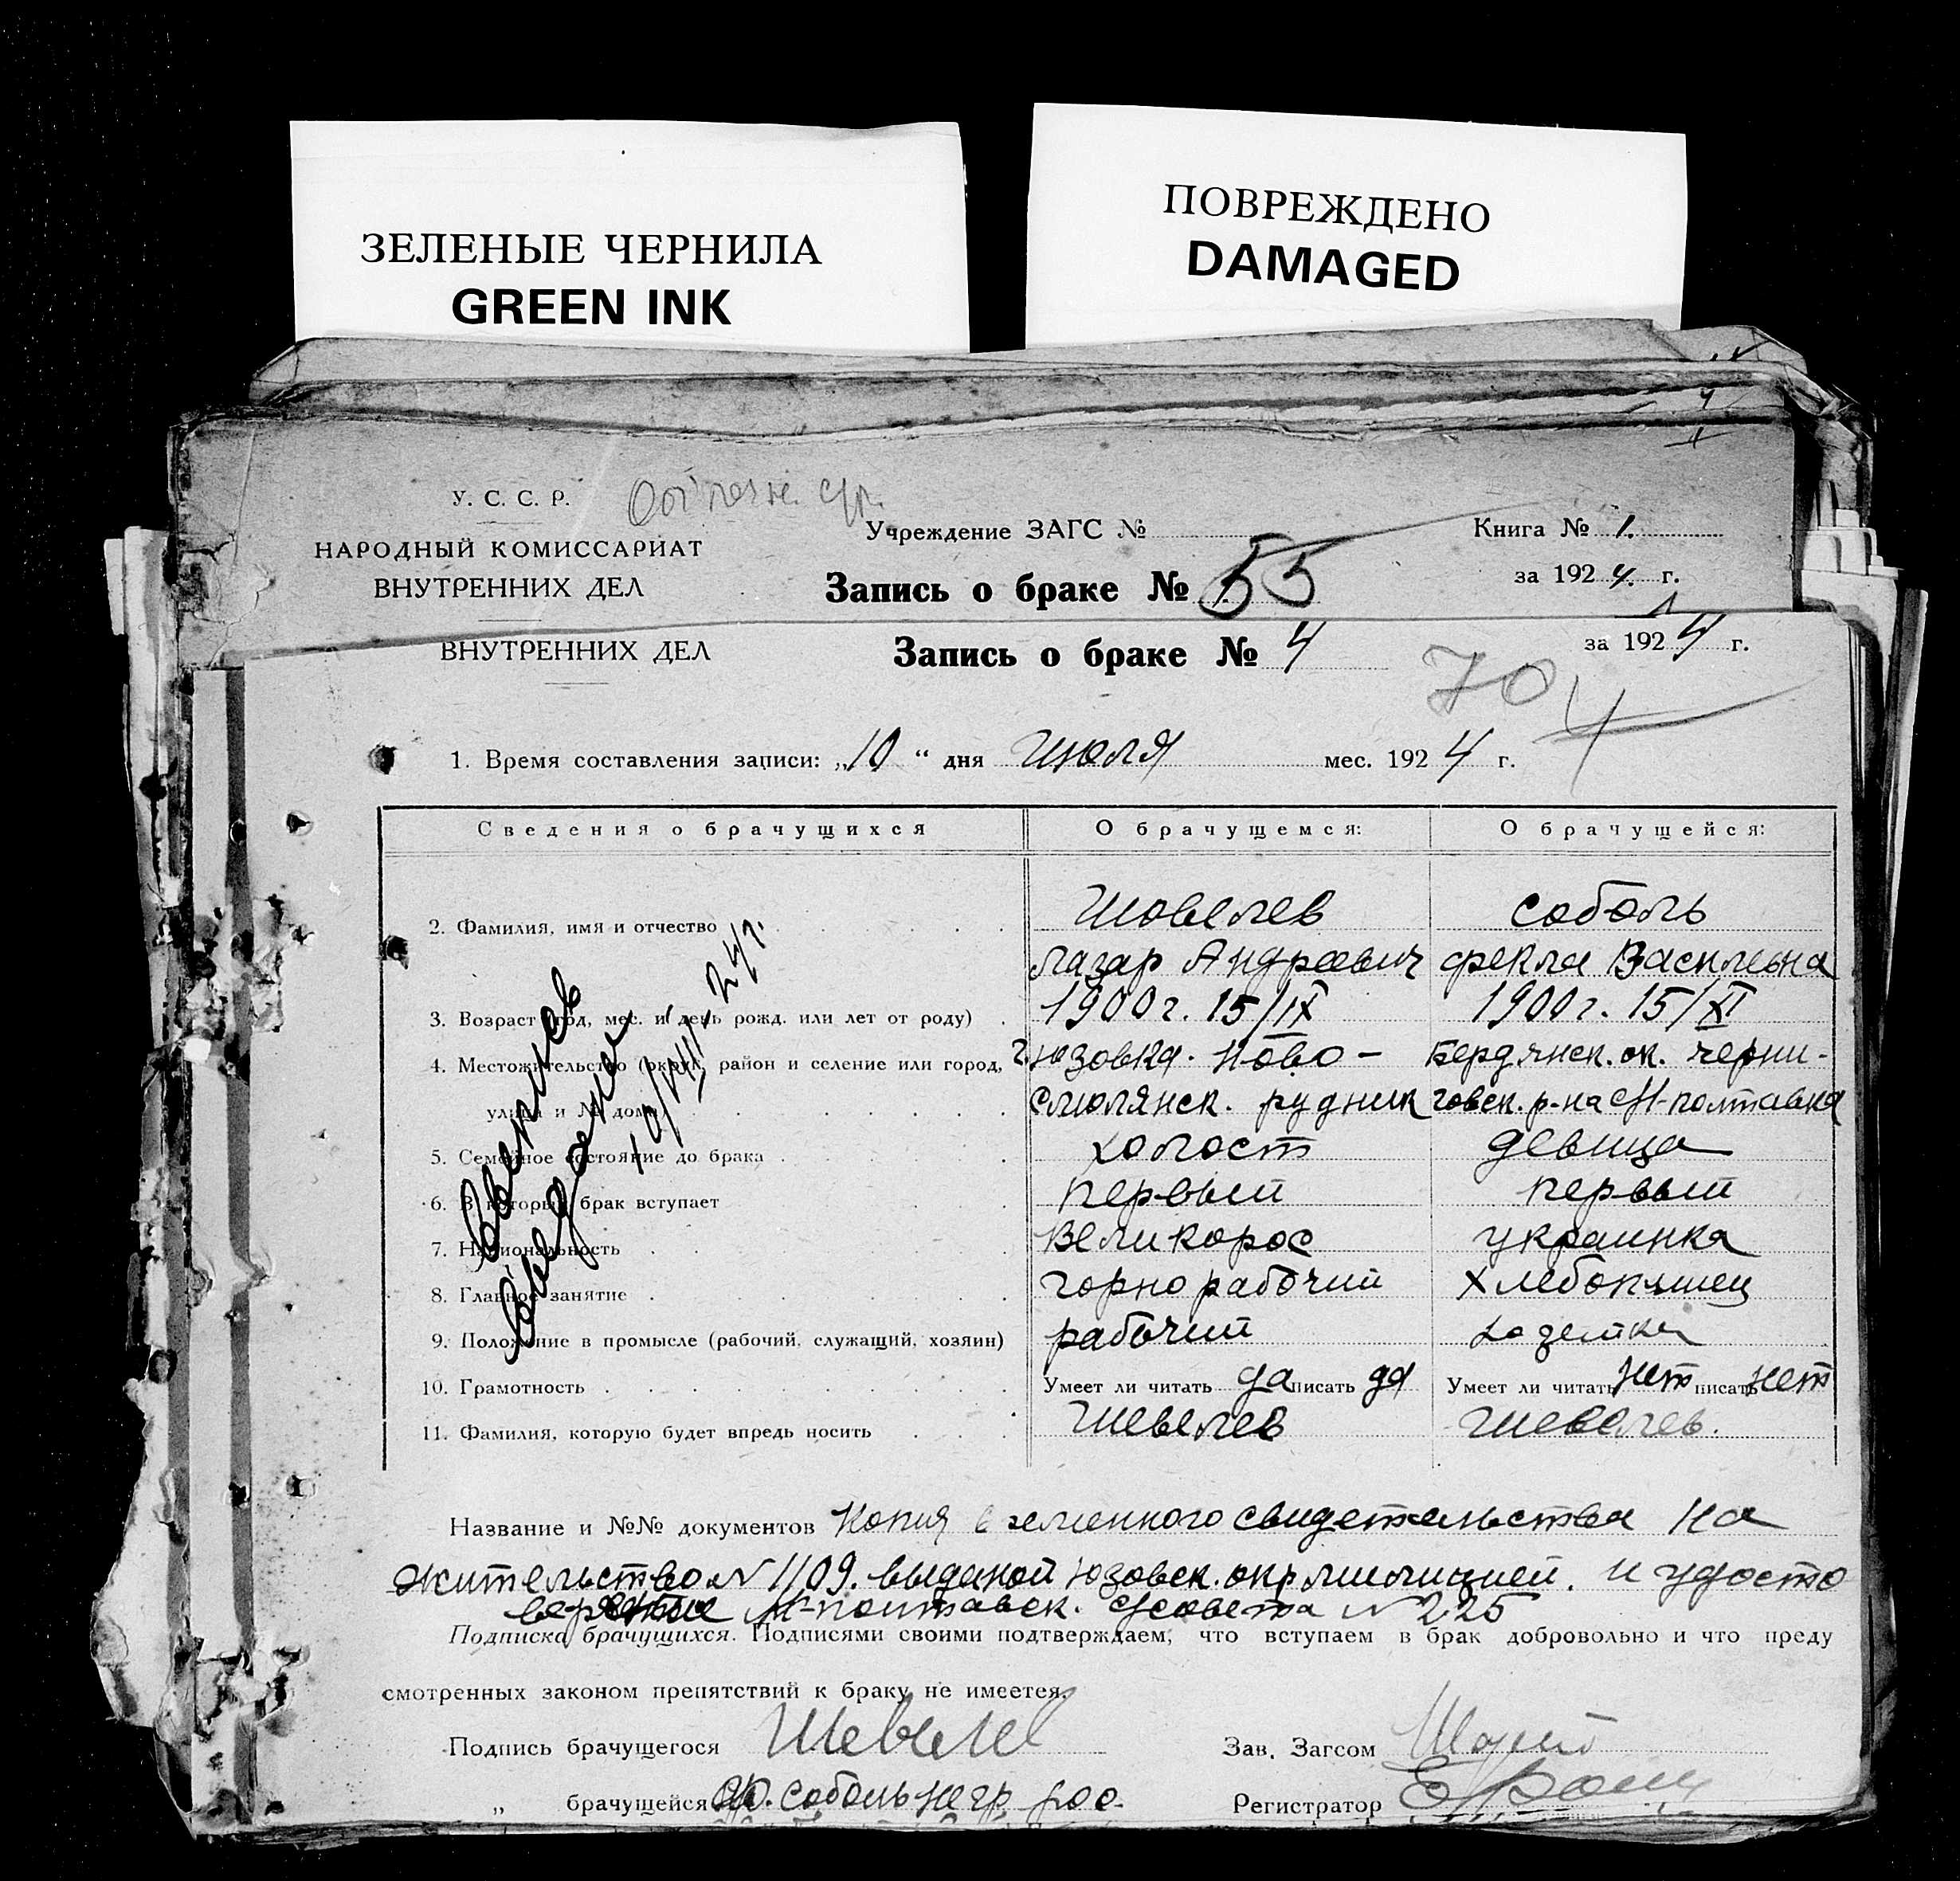 ЗЕЛЕНЫЕ ЧЕРНИЛА
GREEN INK
ПОВРЕЖДЕНО
DAMAGED
У. С. С. Р.
НАРОДНЫЙ КОМИССАРИАТ
ВНУТРЕННИХ ДЕЛ
Учреждение ЗАГС №
Запись о браке № 55
Книга № 1.
за 1924. г.
ВНУТРЕННИХ ДЕЛ
Запись о браке № 4
за 1924 г.
70
4
1. Время составления записи: „10“ дня Июля мес. 1924 г.
Сведения о брачущихся О брачущемся: О брачущейся:
2. Фамилия, имя и отчество Шовелев Соболь
Лазар Андреевич Фекла Василевна
3. Возраст (год, мес. и день рожд. или лет от роду) 1900 г. 15/IX 1900 г. 15/XI
4. Местожительство (округ, район и селение или город, г. Юзовка. Ново- Бердянск. ок. черни-
улица и № дома) смолянск. рудник говск. р-на Н-полтавка
5. Семейное состояние до брака холост девица
6. В который брак вступает первый первый
7. Национальность великорос украинка
8. Главное занятие горно рабочий хлебопашец
9. Положение в промысле (рабочий, служащий, хозяин) рабочий
10. Грамотность Умеет ли читать да писать да Умеет ли читать нет писать нет
11. Фамилия, которую будет впредь носить Шевелев Шевелев.
10/VII-24г.
Название и №№ документов Копия временного свидетельства на
жительство № 1109. выданой Юзовск. окр милицией. и удосто
верение Н-полтавск. с/совета № 225
Подписка брачущихся. Подписями своими подтверждаем, что вступаем в брак добровольно и что преду
смотренных законом препятствий к браку не имеется.
Подпись брачущегося Шевелев Зав. Загсом
„ брачущейся Ф. Соболь негр Регистратор